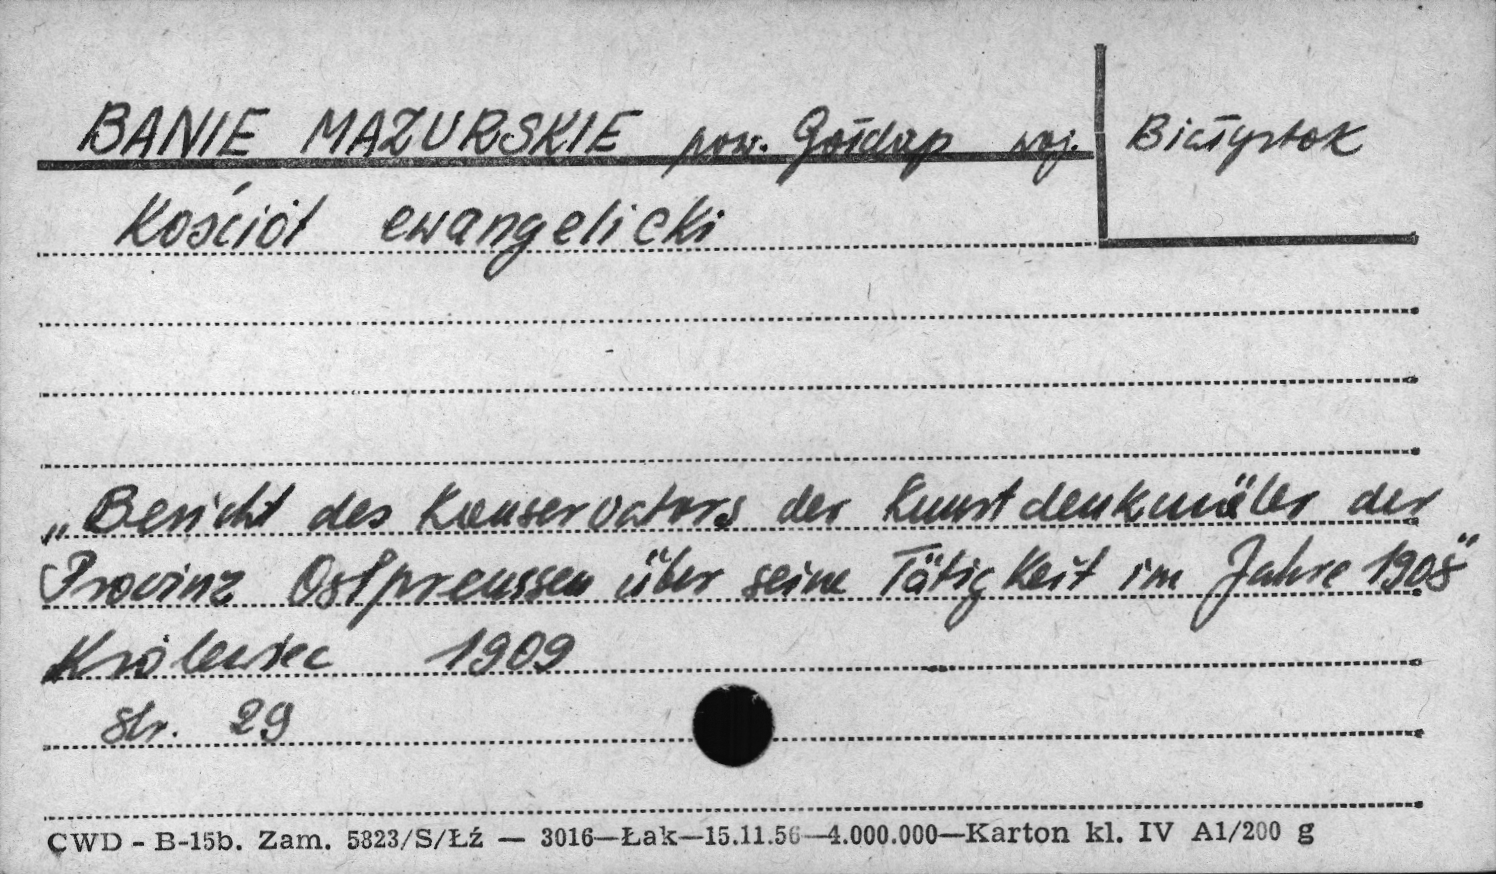 BANIE MAZURSKIE pow. Gołdap woj. Białystok
Kościół ewangelicki
„Bericht des Konservators der Kunstdenkmäler der
Provinz Ostpreussen über seine Tätigkeit im Jahre 1908"
Królewiec 1909
str. 29
CWD - B-15b. Zam. 5823/S/Łź — 3016—Łak—15.11.56—4.000.000—Karton kl. IV A1/200 g